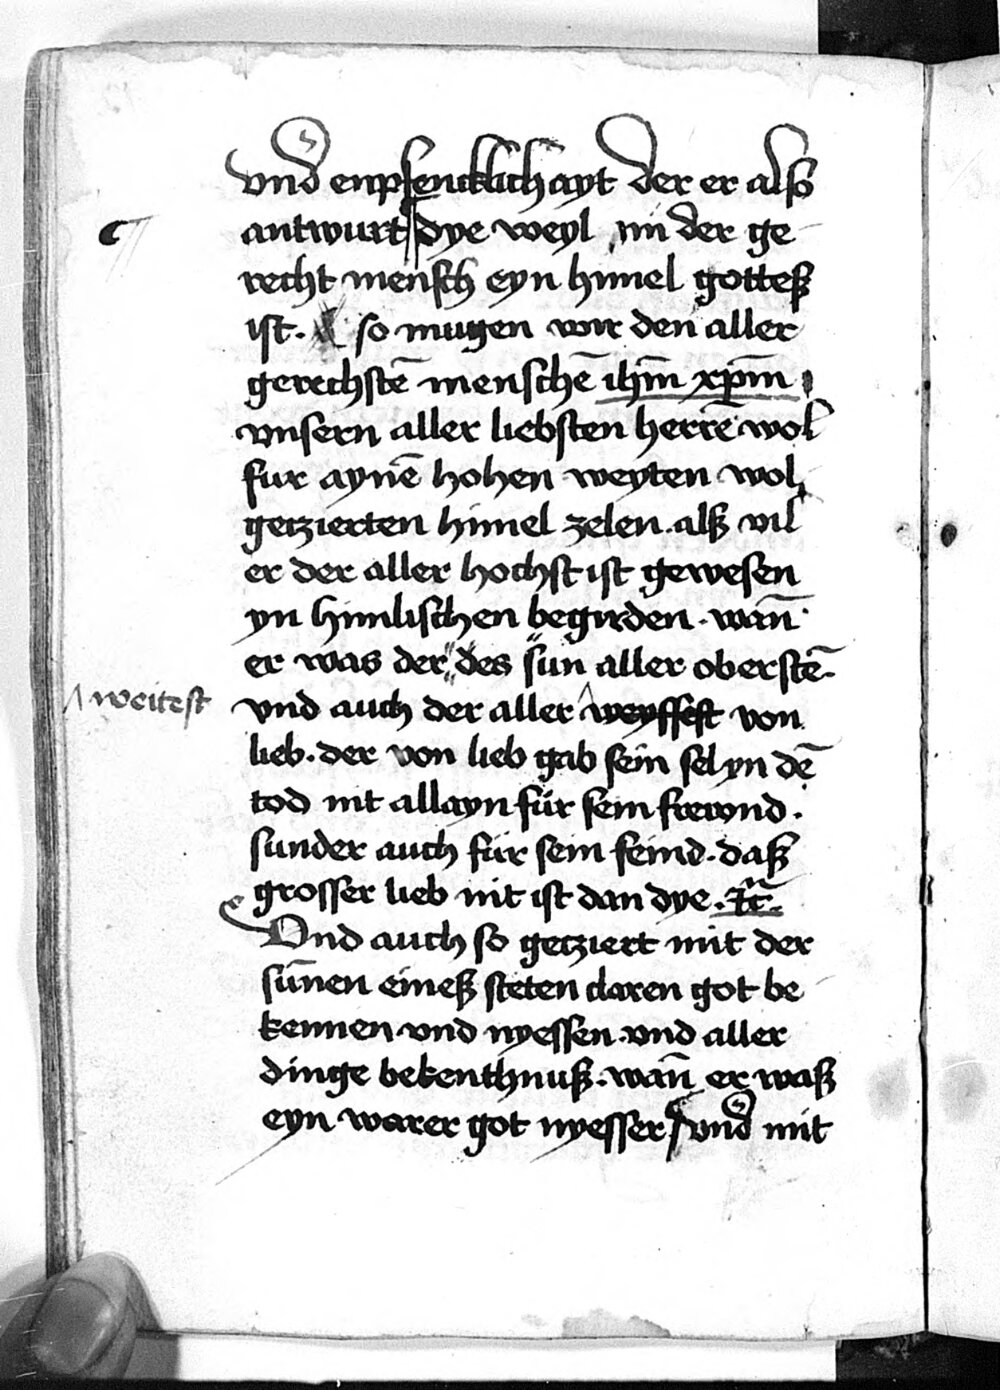 vnd enpfencklichayt der er also
antwurt dye weyl nu der ge
recht mensch eyn himel gotteß
ist. so mugen wir den aller
gerechstē menschē ihm̄ xpm̄
vnsern aller liebsten herrē wol
fur aynē hohen weyten wol
getzierten himel zelen. alß vil
er der aller hochst ist gewesen
yn himlischen begirden. wan̄
er was der des sun aller oberstē.
weitest
vnd auch der aller weyssest von
lieb. der von lieb gab sein sel yn dē
tod nit allayn für sein frewnd.
sunder auch für sein feind. daß
grosser lieb nit ist dan dye. ꝛc̄.
Vnd auch so getziert mit der
sūnen eineß steten claren got be
kennen vnd nyessen. vnd aller
dinge bekenthnuß. wan̄ er waß
eyn warer got nyesser vnd mit